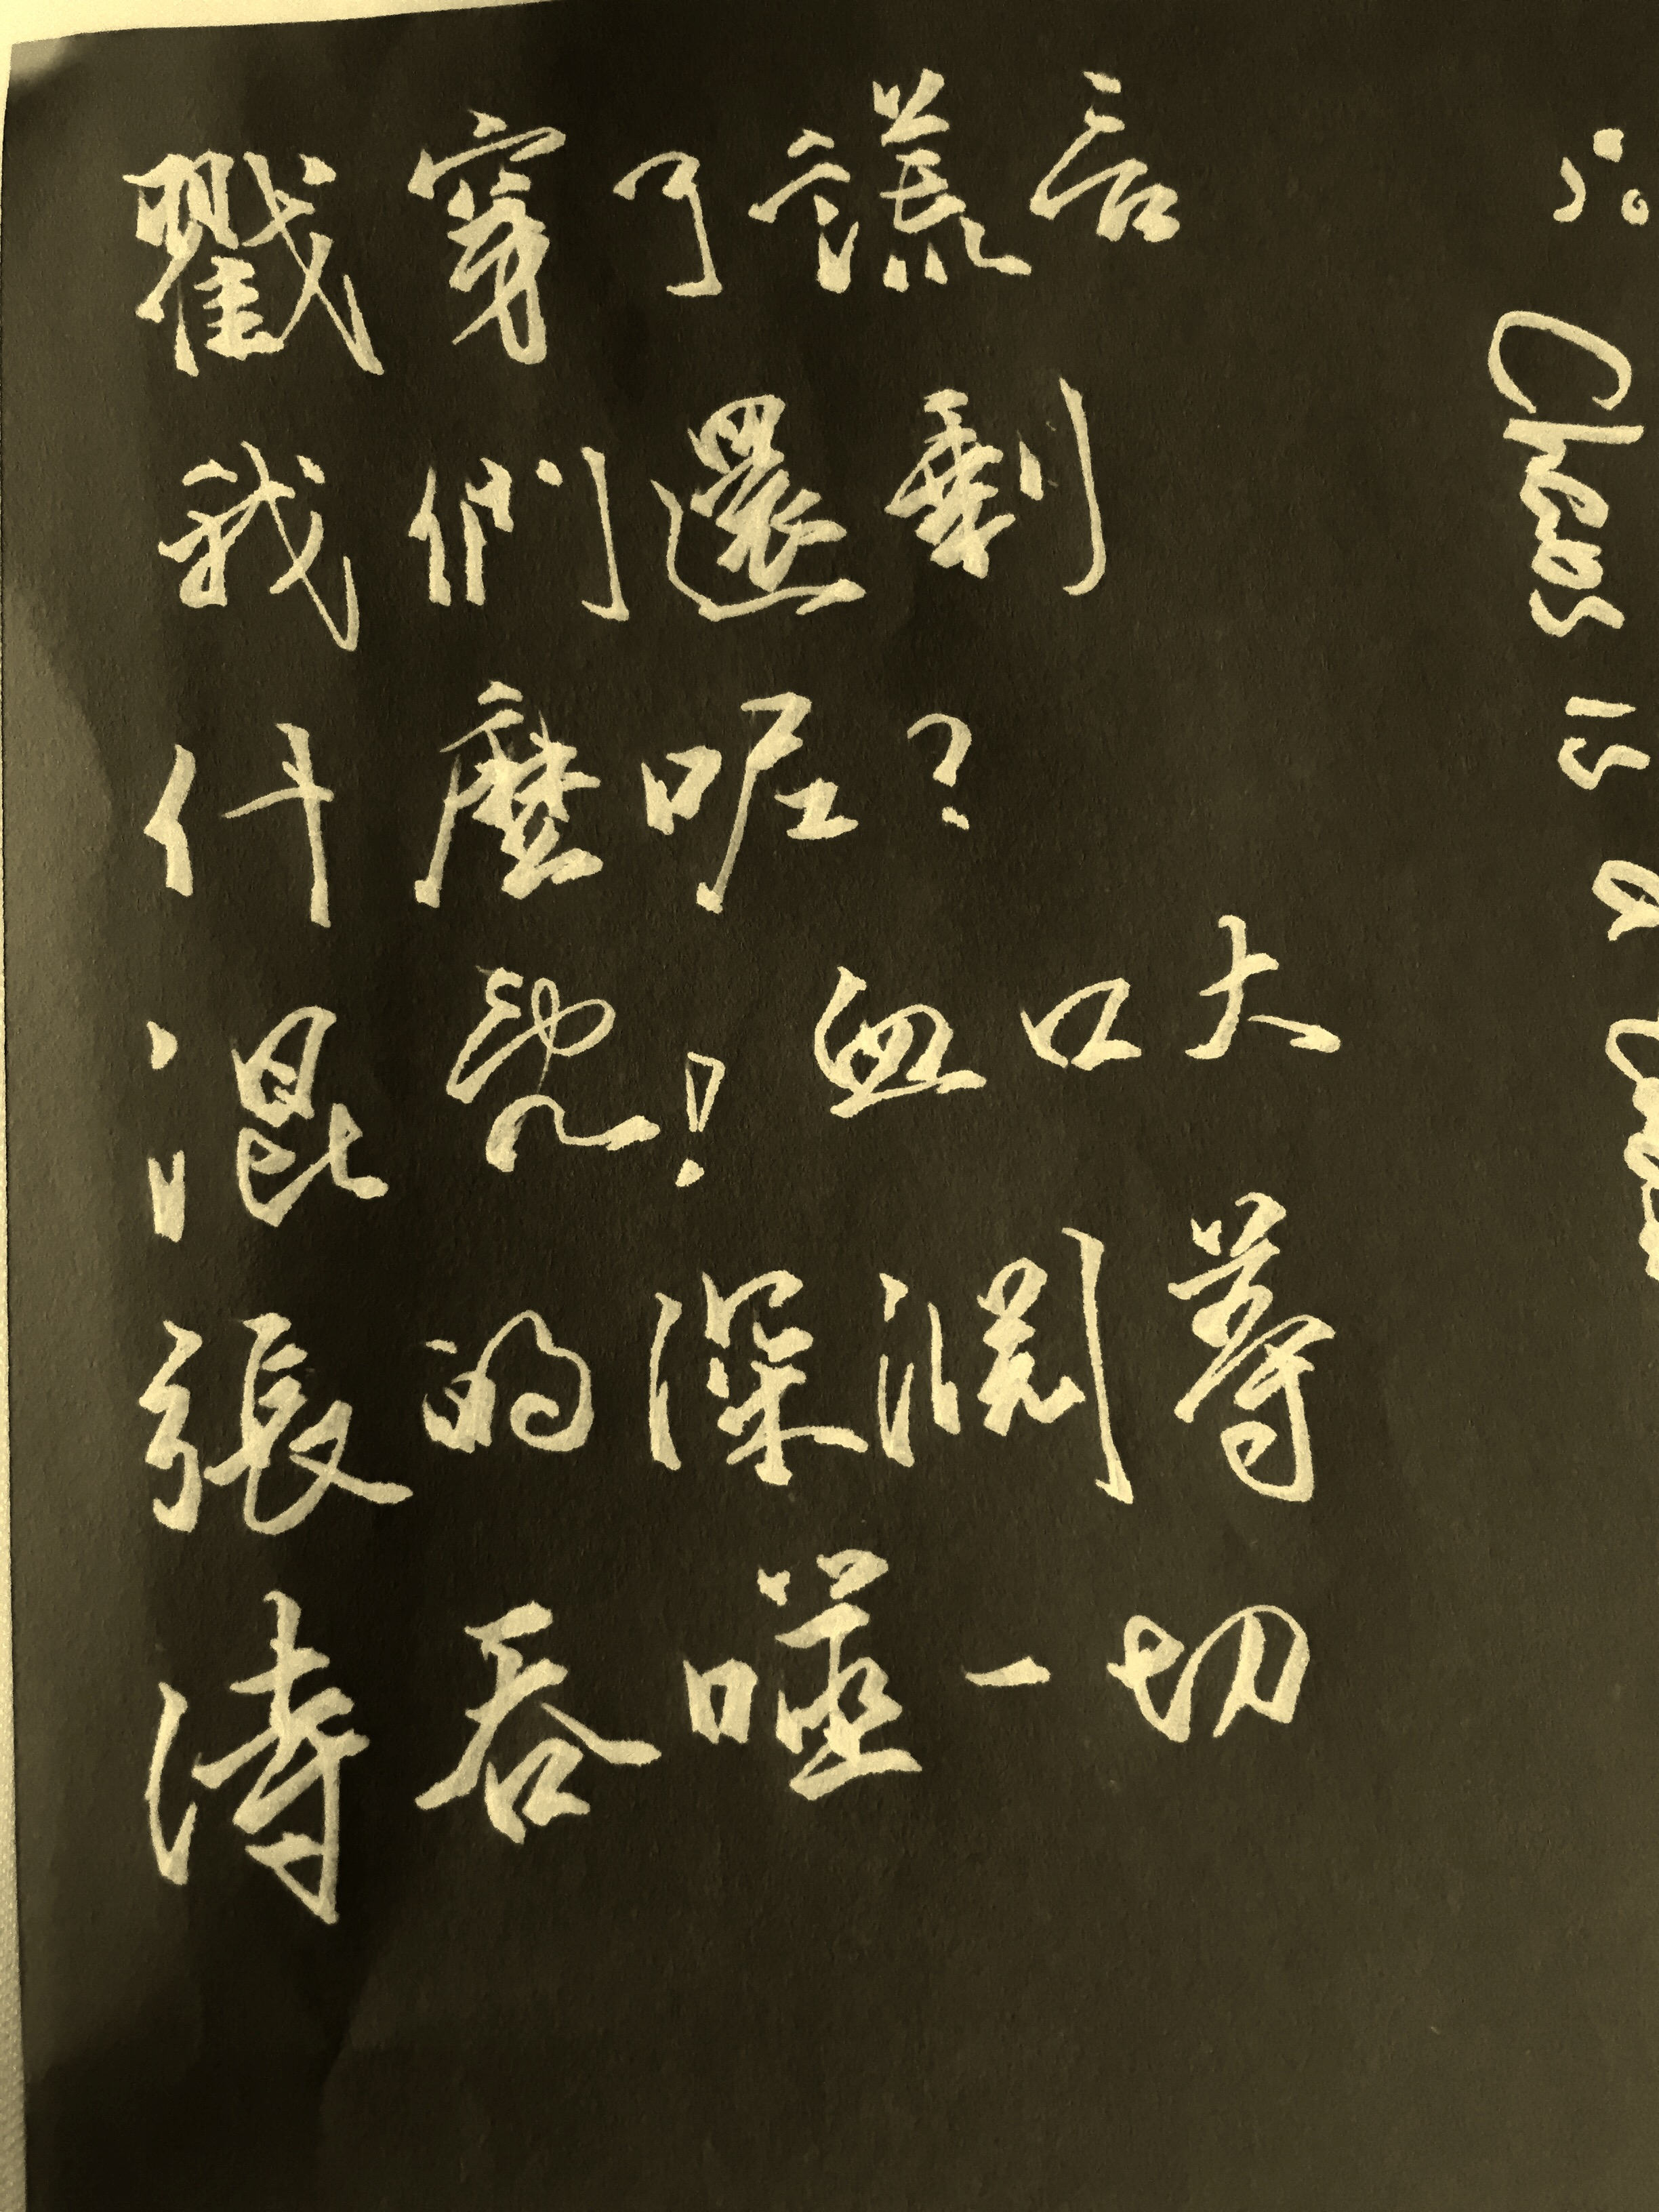 戳穿了謊言
我們還剩
什麼呢?
混亂!血口大
張的深淵等
待吞噬一切
Chaos is a